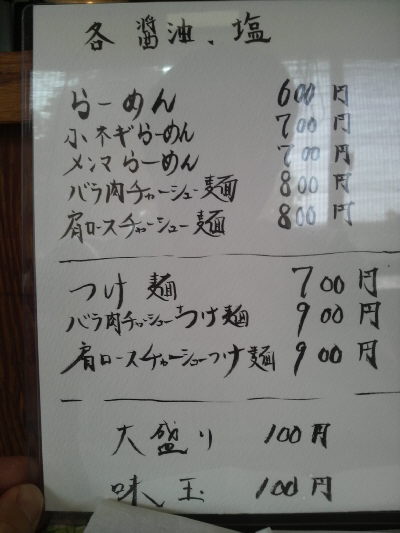 各醤油、塩
らーめん 600円
小ネギらーめん 700円
メンマらーめん 700円
バラ肉チャーシュー麺 800円
肩ロースチャーシュー麺 800円
つけ麺 700円
バラ肉チャーシューつけ麺 900円
肩ロースチャーシューつけ麺 900円
大盛り 100円
味玉 100円